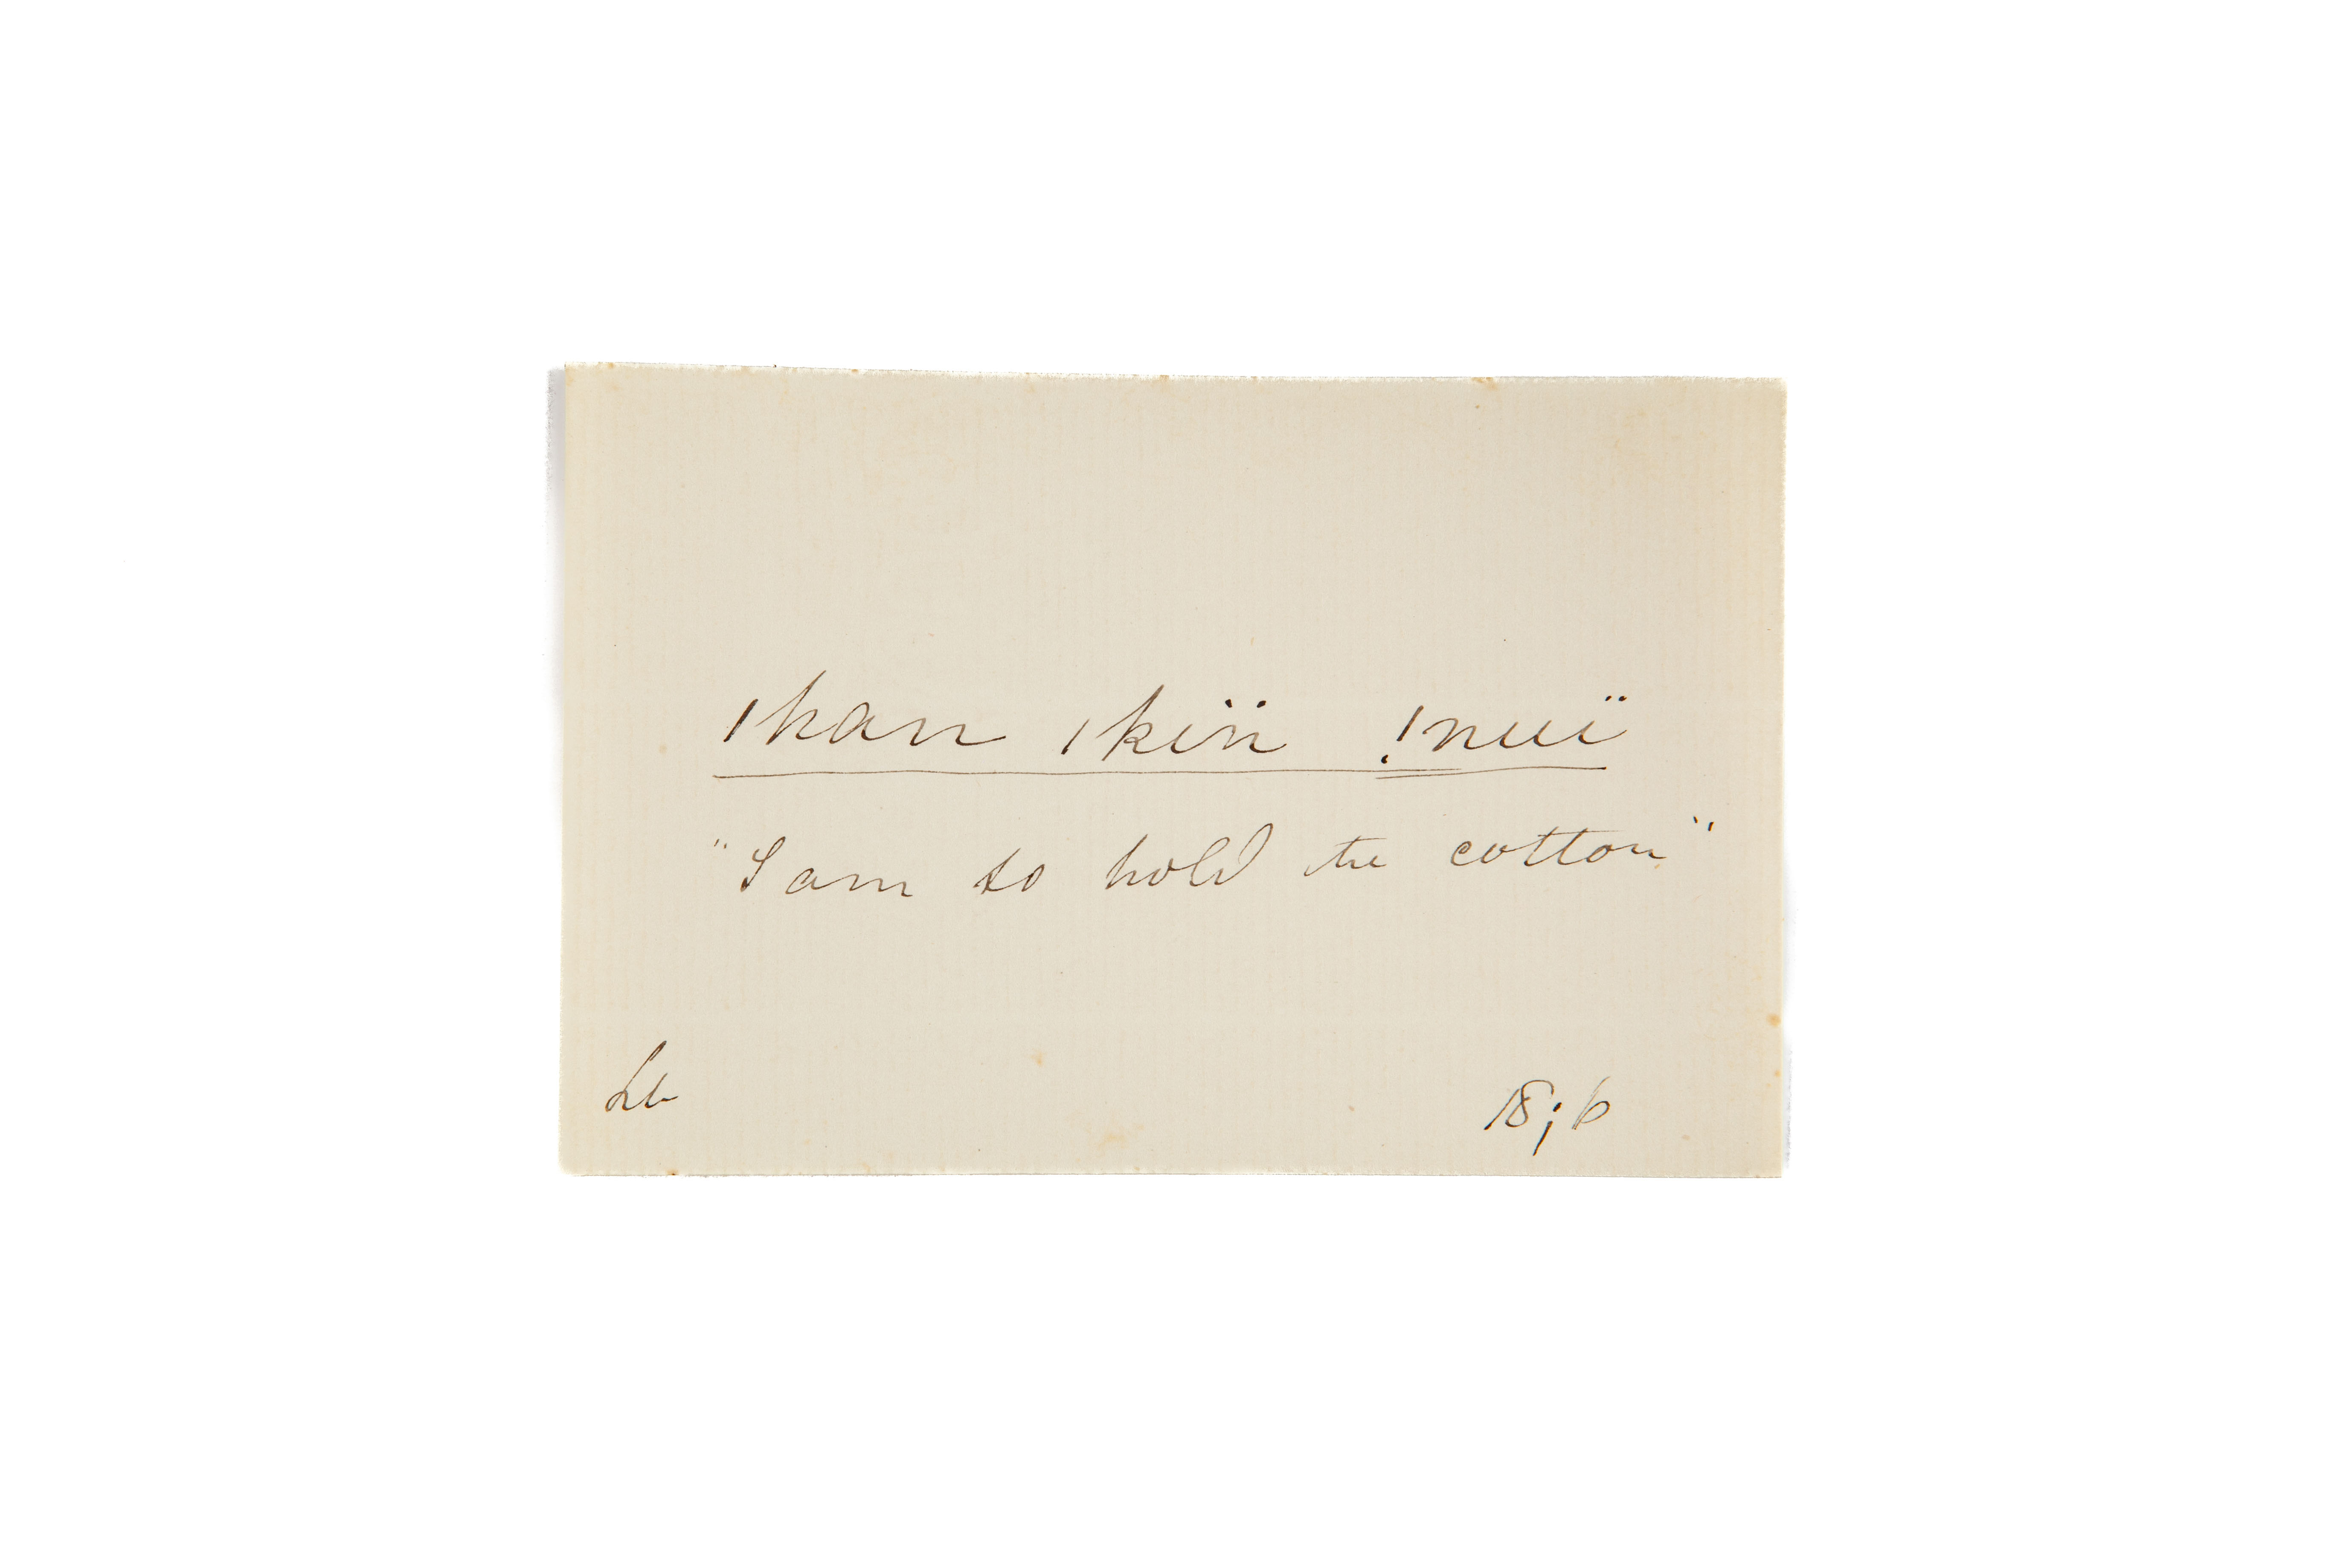 ǀkan ǀkïn !nuï
"I am to hold the cotton"
Lb 18; b